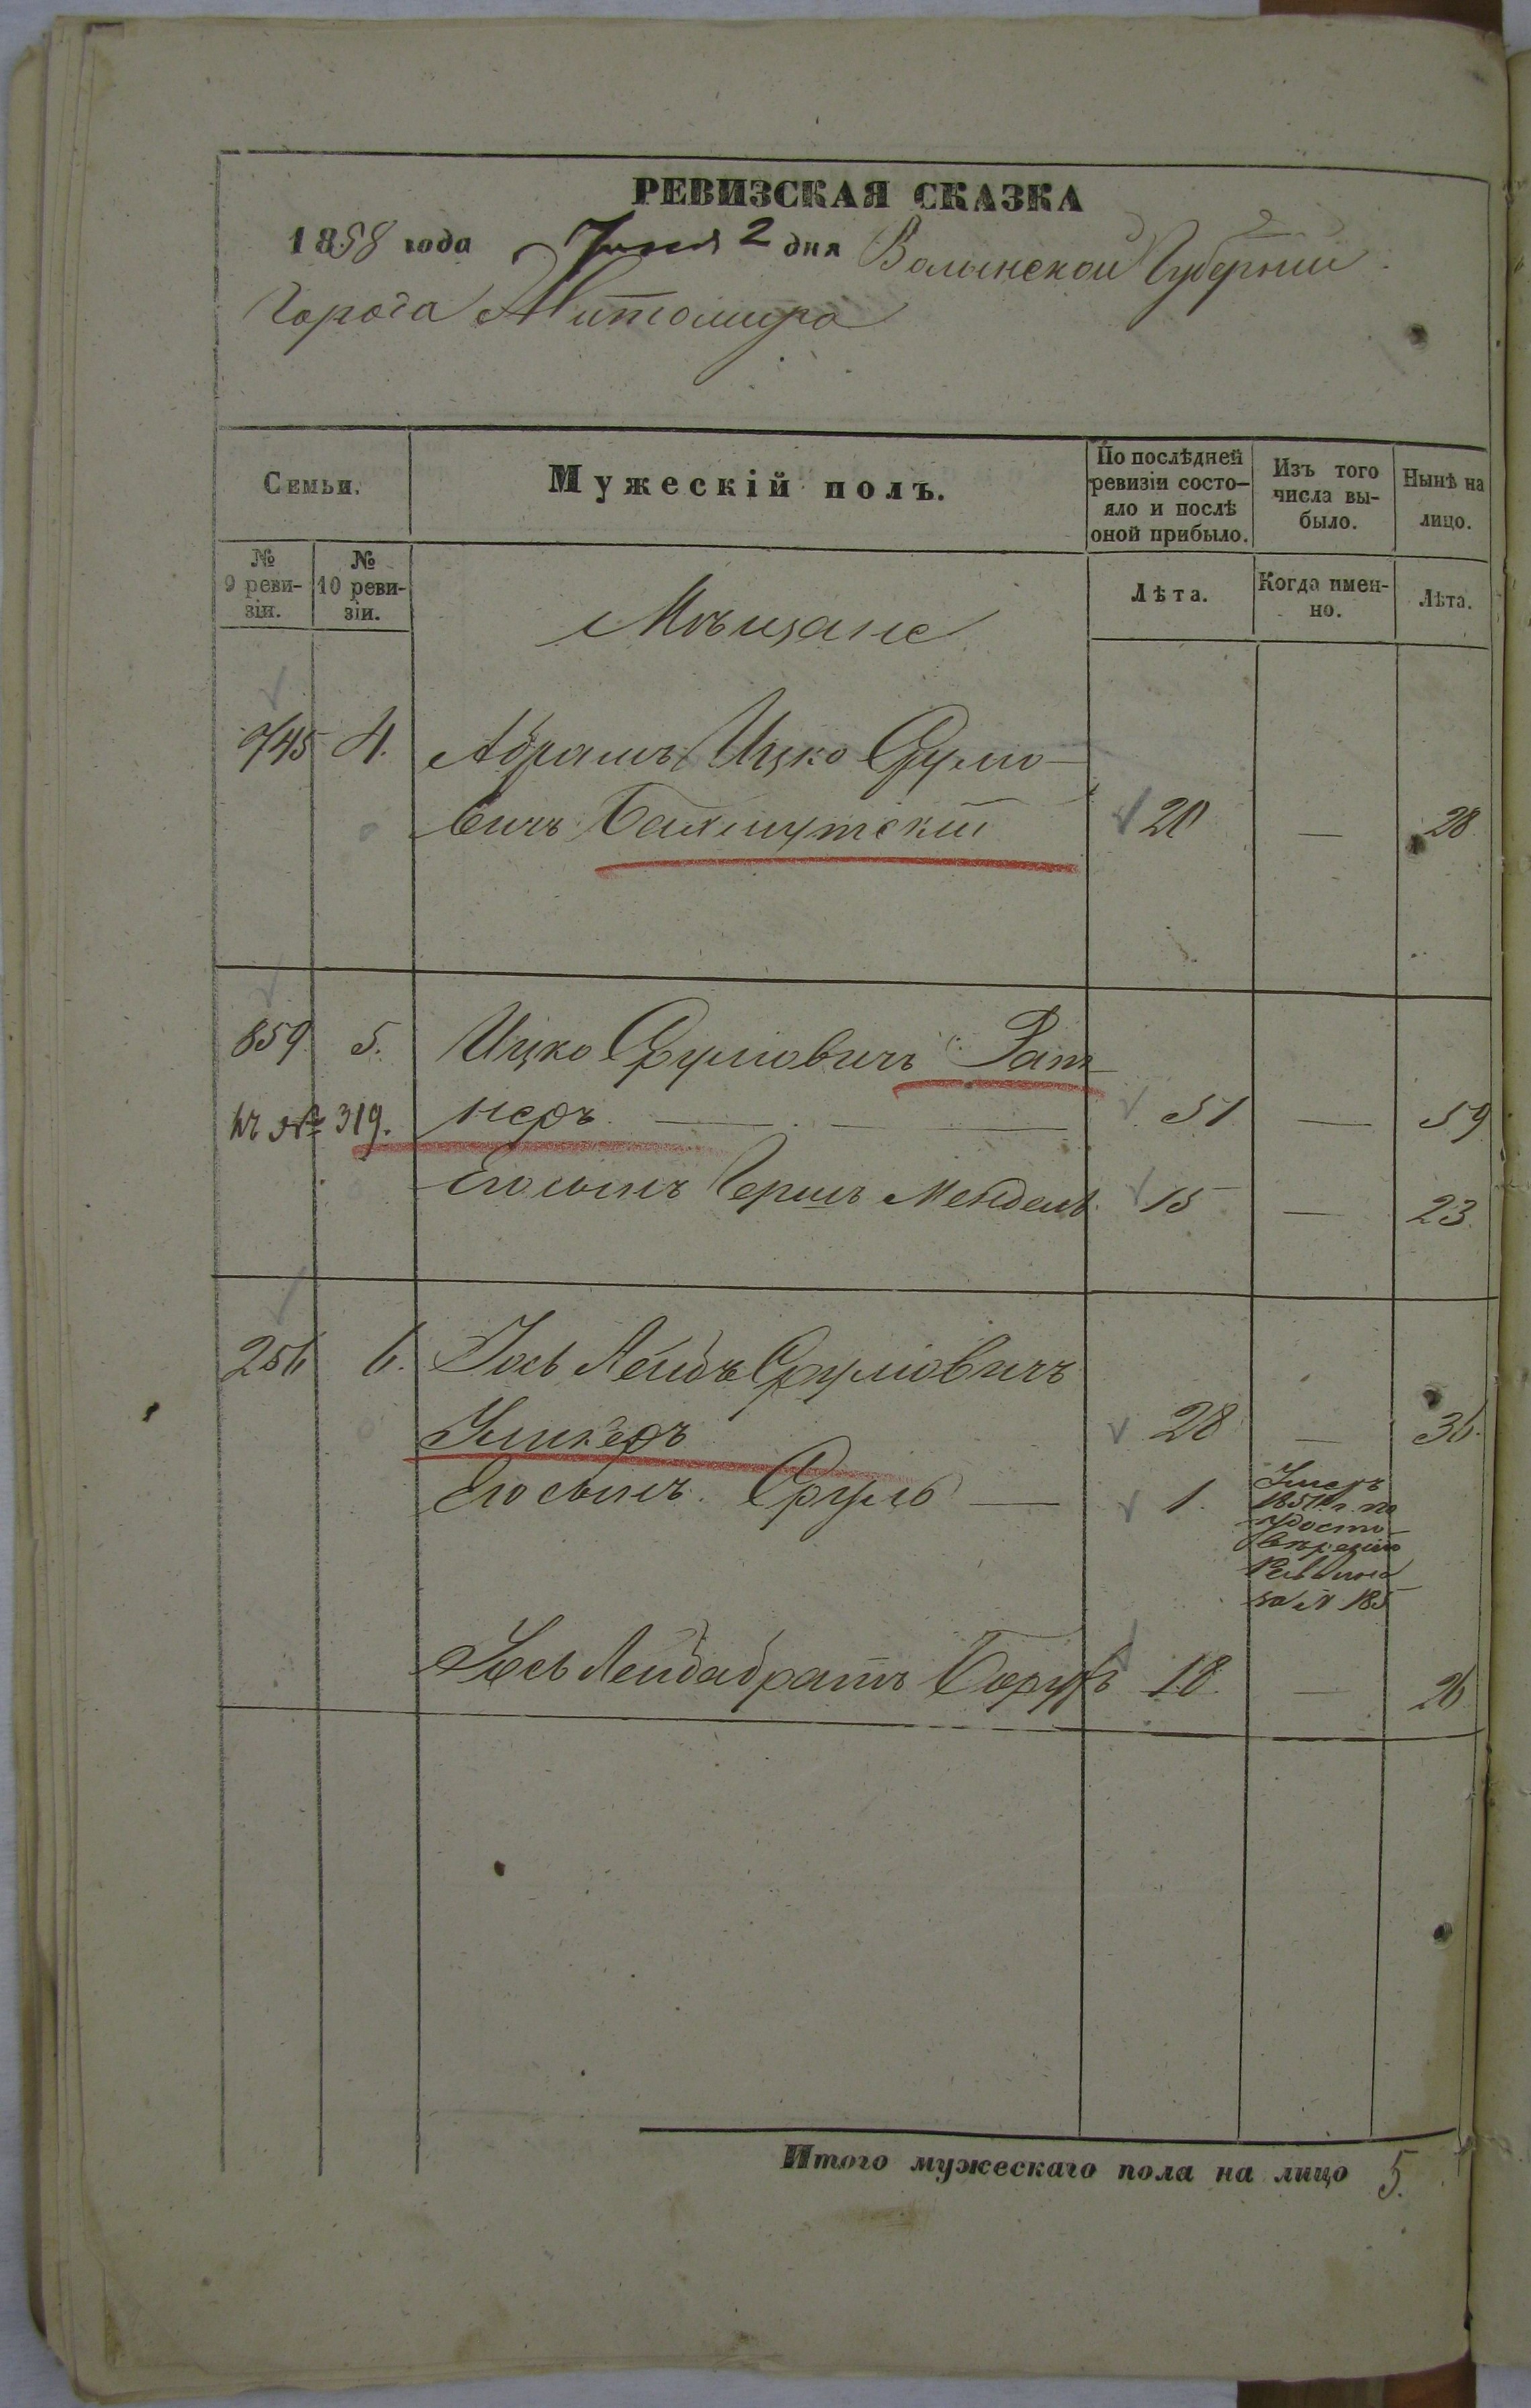 РЕВИЗСКАЯ СКАЗКА
1858 года Іюня 2 дня Волынской Губерніи
Города Житомира
Семьи.
Мужескій полъ.
По послѣдней ревизіи состо-
яло и послѣ оной прибыло.
Изъ того числа вы-
было.
Нынѣ на лицо.
№ 9 реви-
зіи.
№ 10 реви-
зіи.
Лѣта.
Когда имен-
но.
Лѣта.
Мѣщане
745 4. Абрамъ Ицко Сруло-
вичъ Бахмутскій 20 — 28
859 5. Ицко Срулiовичъ Рат-
къ № 319. неръ. — — 51 — 59
Его сынъ Гершъ Мендель 15 — 23.
256 6. Іось Лейбъ Срулiовичъ
28 — 36.
Его сынъ Сруль — 1.
Умеръ
185 г. по
удосто-
вѣренію
Раввина
за № 185
Іось Лейба братъ Борухъ 18. — 26
Итого мужескаго пола на лицо 5.